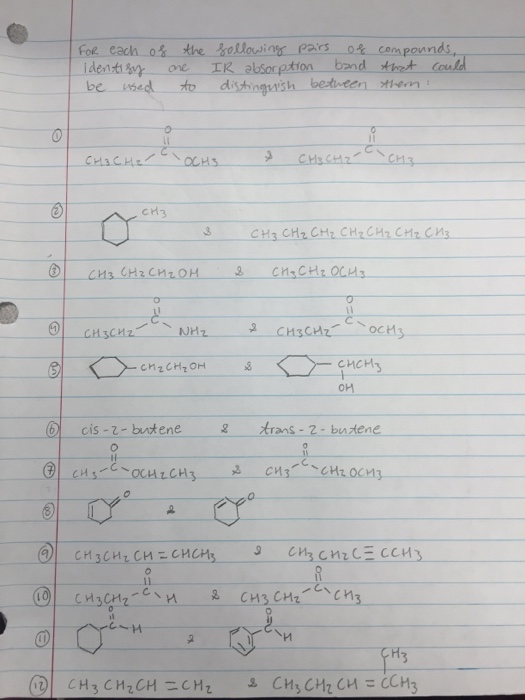 For each of the following pairs of compounds,
Identify one IR absorption band that could
be used to distinguish between them:
① CH3CH2-C(=O)-OCH3 & CH3CH2-C(=O)-CH3
② CH3 & CH3CH2CH2CH2CH2CH2CH3
③ CH3CH2CH2OH & CH3CH2OCH3
④ CH3CH2-C(=O)-NH2 & CH3CH2-C(=O)-OCH3
⑤ -CH2CH2OH & -CHCH3
OH
⑥ cis-2-butene & trans-2-butene
⑦ CH3-C(=O)-OCH2CH3 & CH3-C(=O)-CH2OCH3
⑧ =O & =O
⑨ CH3CH2CH=CHCH3 & CH3CH2C≡CCH3
⑩ CH3CH2-C(=O)-H & CH3CH2-C(=O)-CH3
⑪ C(=O)-H & C(=O)-H
CH3
⑫ CH3CH2CH=CH2 & CH3CH2CH=CCH3